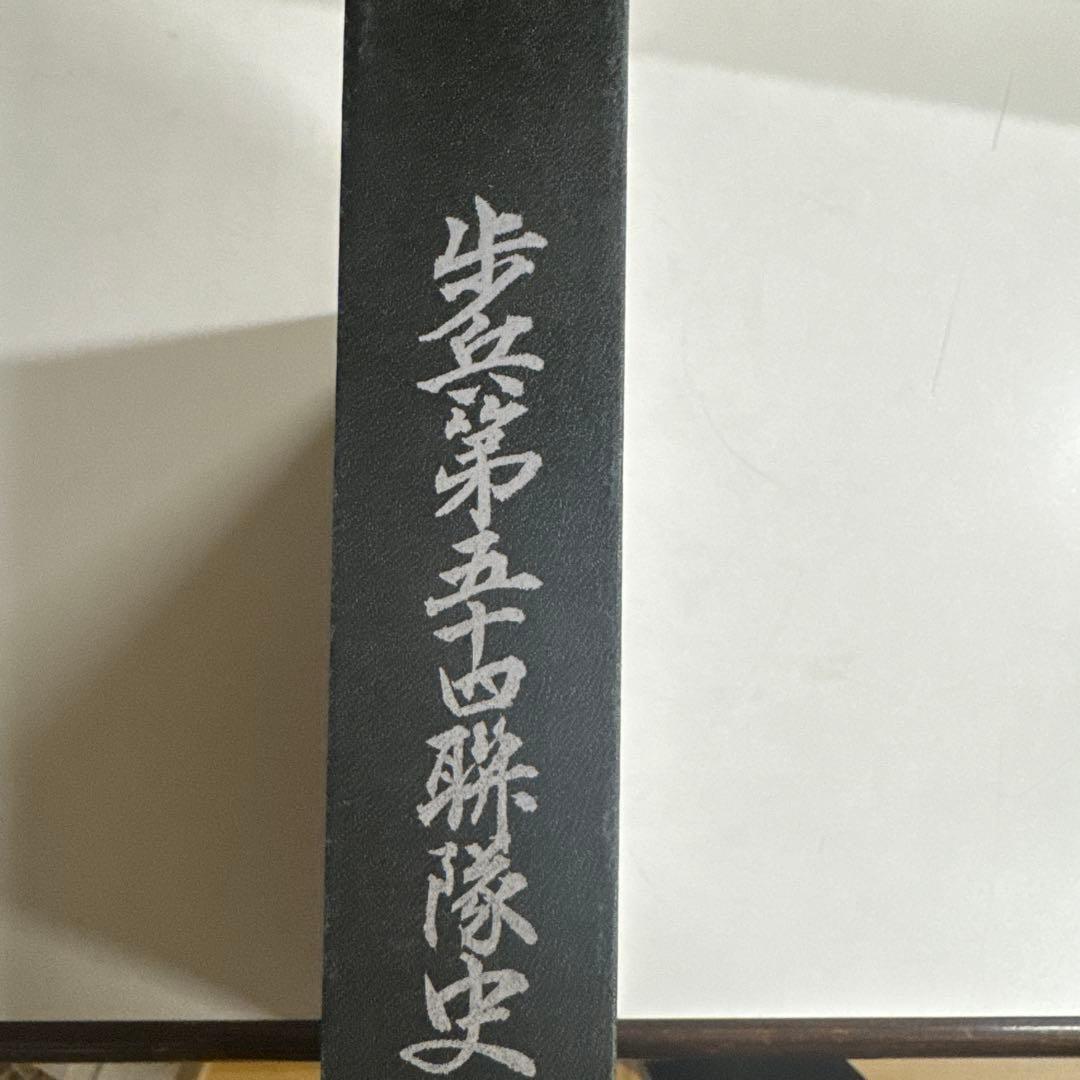 歩兵第五十四聯隊史